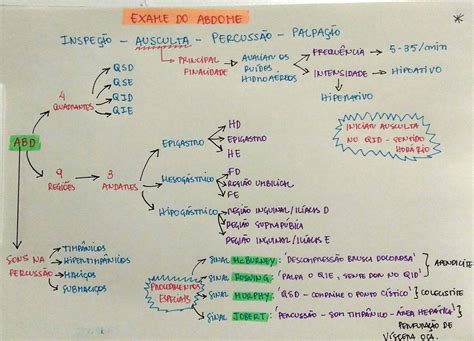 EXAME DO ABDOME
*
INSPEÇÃO - AUSCULTA - PERCUSSÃO - PALPAÇÃO
PRINCIPAL FINALIDADE
AVALIAR OS RUÍDOS HIDROAÉREOS
FREQUÊNCIA 5-35/min
INTENSIDADE HIPOATIVO
HIPERATIVO
INICIAR AUSCULTA
NO QID - SENTIDO
HORÁRIO
ABD
4 QUADRANTES
QSD
QSE
QID
QIE
9 REGIÕES
3 ANDARES
EPIGÁSTRIO
HD
EPIGÁSTRIO
HE
MESOGÁSTRICO
FD
REGIÃO UMBILICAL
FE
HIPOGÁSTRICO
REGIÃO INGUINAL/ILÍACA D
REGIÃO SUPRAPÚBICA
REGIÃO INGUINAL/ILÍACA E
SONS NA PERCUSSÃO
TIMPÂNICOS
HIPERTIMPÂNICOS
MACIÇOS
SUBMACIÇOS
PROCEDIMENTOS ESPECIAIS
SINAL MCBURNEY: 'DESCOMPRESSÃO BRUSCA DOLOROSA'
SINAL ROSVING: 'PALPA O QIE, SENTE DOR NO QID'
} APENDICITE
SINAL MURPHY: 'QSD - COMPRIME O PONTO CÍSTICO' } COLECISTITE
SINAL JOBERT: 'PERCUSSÃO - SOM TIMPÂNICO - ÁREA HEPÁTICA'
PERFURAÇÃO DE
VÍSCERA OCA.